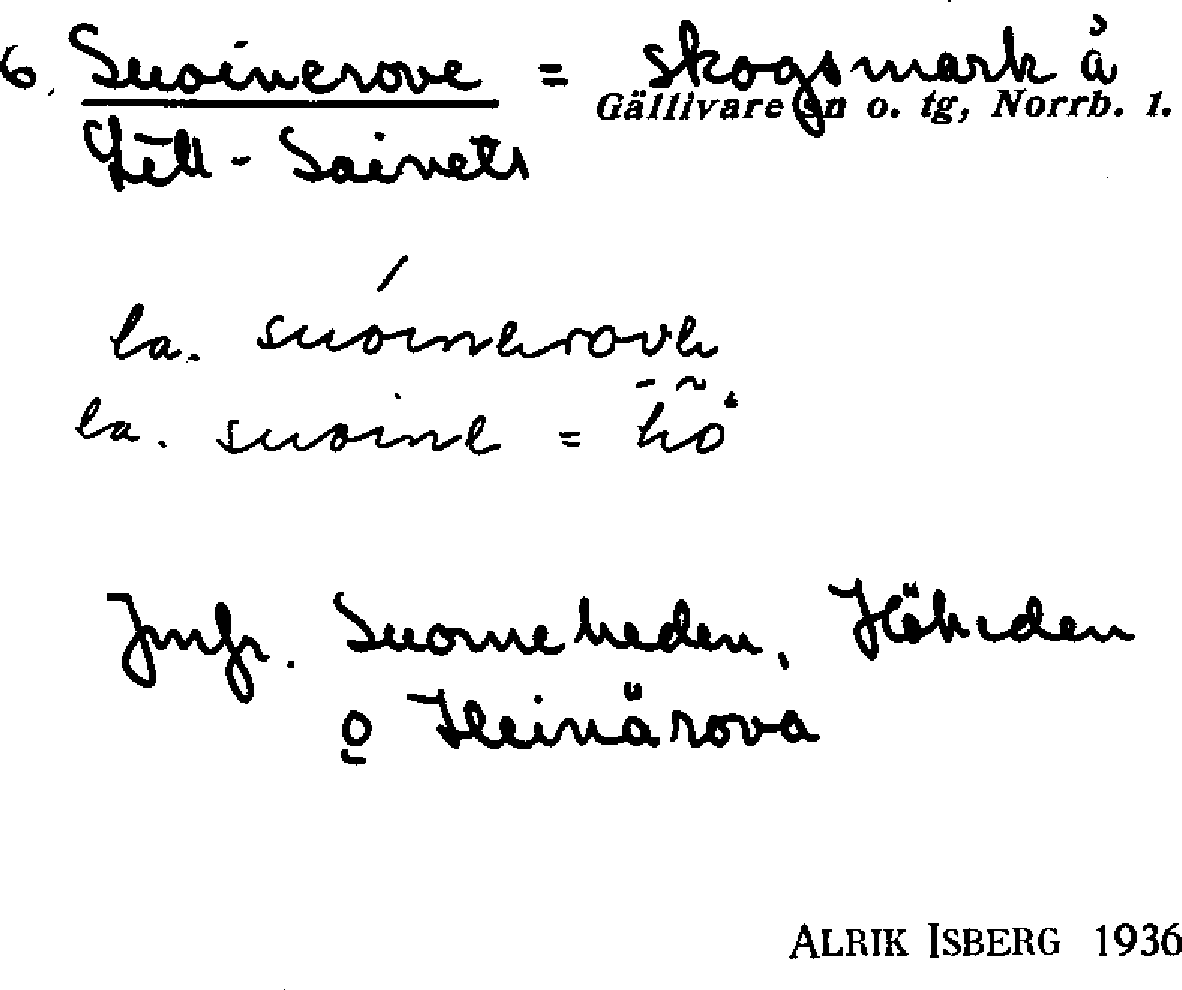 6. Suoinerove = skogsmark å
Gällivare sn o. tg, Norrb. l.
Lill-Sainets
la. suoinerove
la. suoine = hö
Jmfr. Suorneheden, Höheden
o Heinärova
ALRIK ISBERG 1936